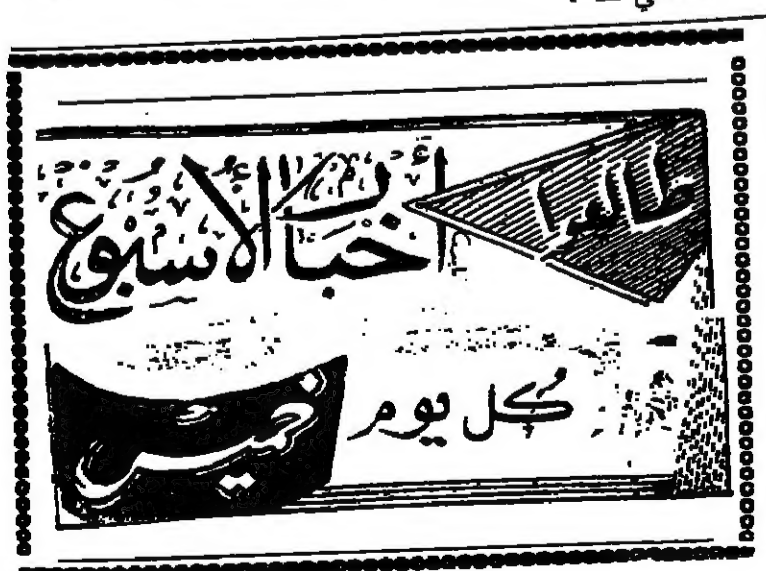 طالعوا
أخبار الأسبوع
كل يوم
خميس